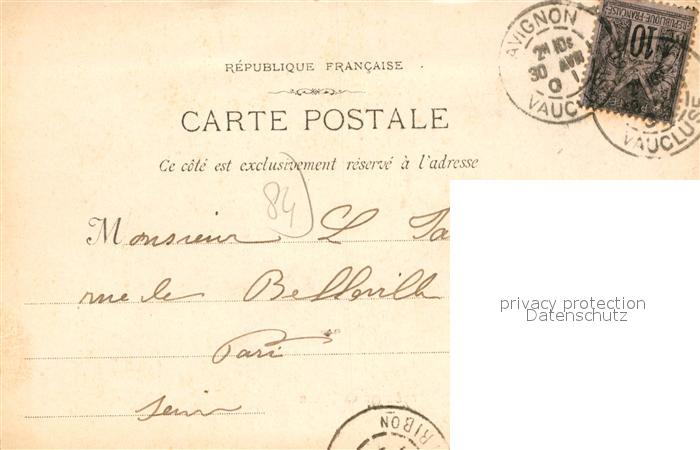 RÉPUBLIQUE FRANÇAISE
CARTE POSTALE
Ce côté est exclusivement réservé à l'adresse
84
Monsieur L
rue de Belleville
Paris
Seine
AVIGNON
30 AVR
VAUCLUSE
RÉPUBLIQUE FRANÇAISE
10
privacy protection
Datenschutz
RIBON